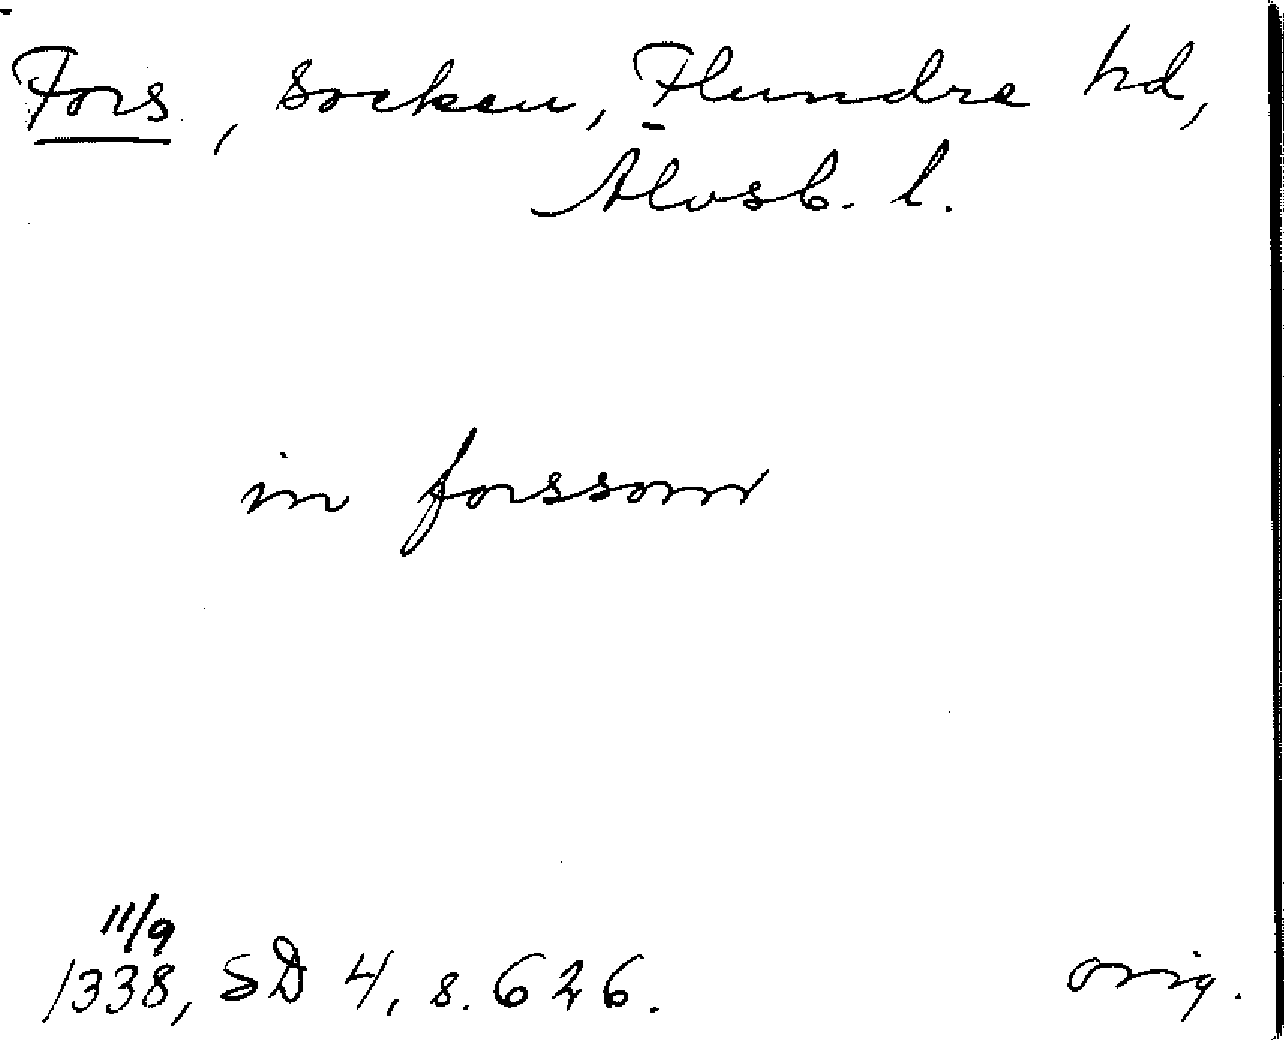 Fors, socken, Flundre hd,
Älvsb. l.
in forssom
11/9
1338, SD 4, s. 626.
orig.